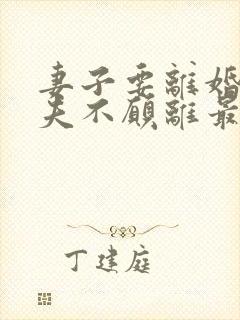 妻子要離婚
夫不願離最
丁建庭